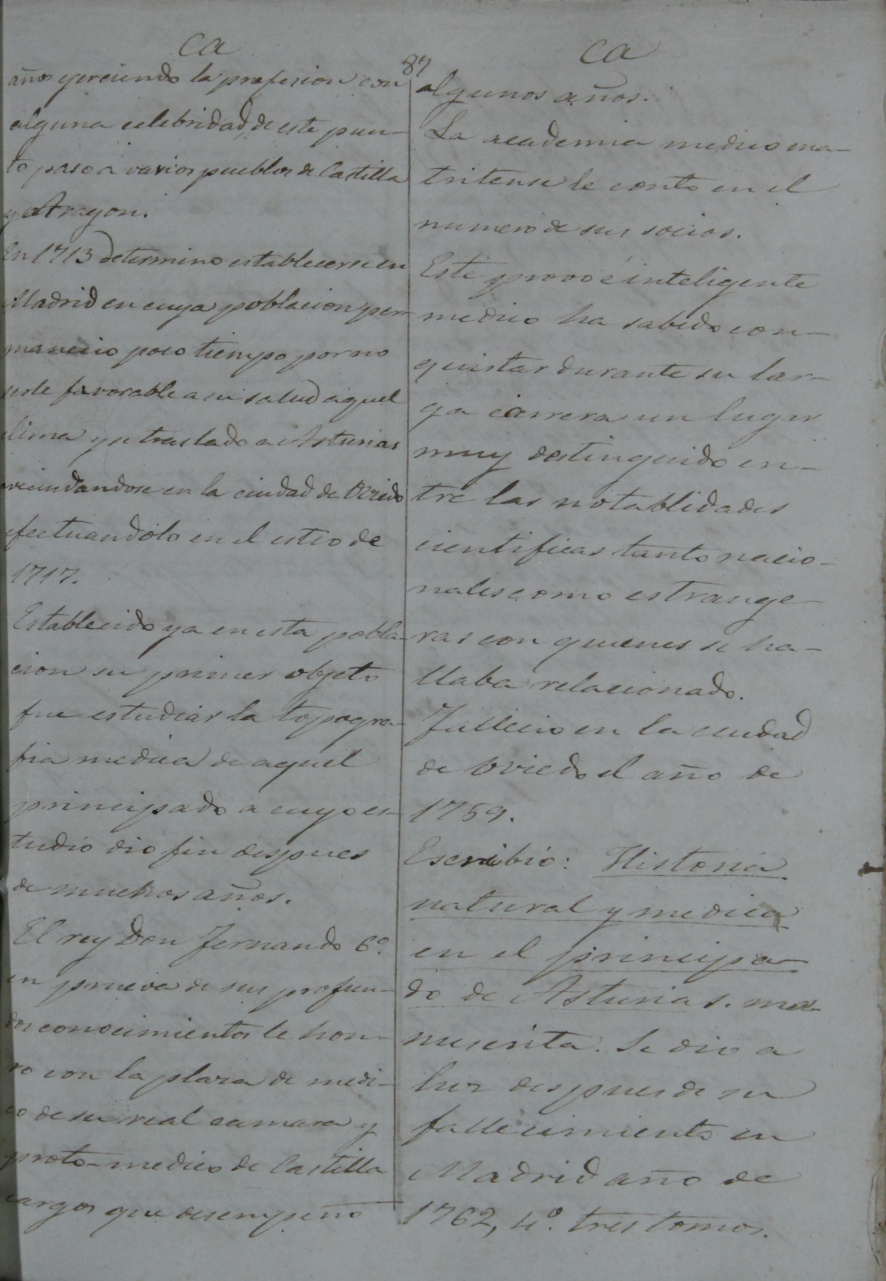 ca
87
ca
año ejerciendo la profesion con
alguna celebridad, de este pun-
to paso a varios pueblos de Castilla
y Aragon.
En 1713 determino establecerse en
Madrid en cuya poblacion per-
manecio poco tiempo por no
serle favorable a su salud aquel
clima y se traslado a Asturias
avecindandose en la ciudad de Oviedo
efectuandolo en el estio de
1717.
Establecido ya en esta pobla-
cion su primer objeto
fue estudiar la topogra-
fia medica de aquel
principado a cuyo es-
tudio dio fin despues
de muchos años.
El rey Don Fernando 6º.
en prueva de sus profun-
dos conocimientos le hon-
ro con la plaza de medi-
co de su real camara y
proto-medico de Castilla
cargos que desempeño
algunos años.
La academia medico ma-
tritense le conto en el
numero de sus socios.
Este provo é inteligente
medico ha sabido con-
quistar durante su lar-
ga carrera un lugar
muy distinguido en-
tre las notablidades
cientificas tanto nacio-
nales como estrange-
ras con quienes se ha-
llaba relacionado.
Fallecio en la ciudad
de Oviedo el año de
1759.
Escribió: Historia
natural y medica
en el principa-
do de Asturias. ma-
nuscrita. Se dio a
luz despues de su
fallecimiento en
Madrid año de
1762, 4º. tres tomos.